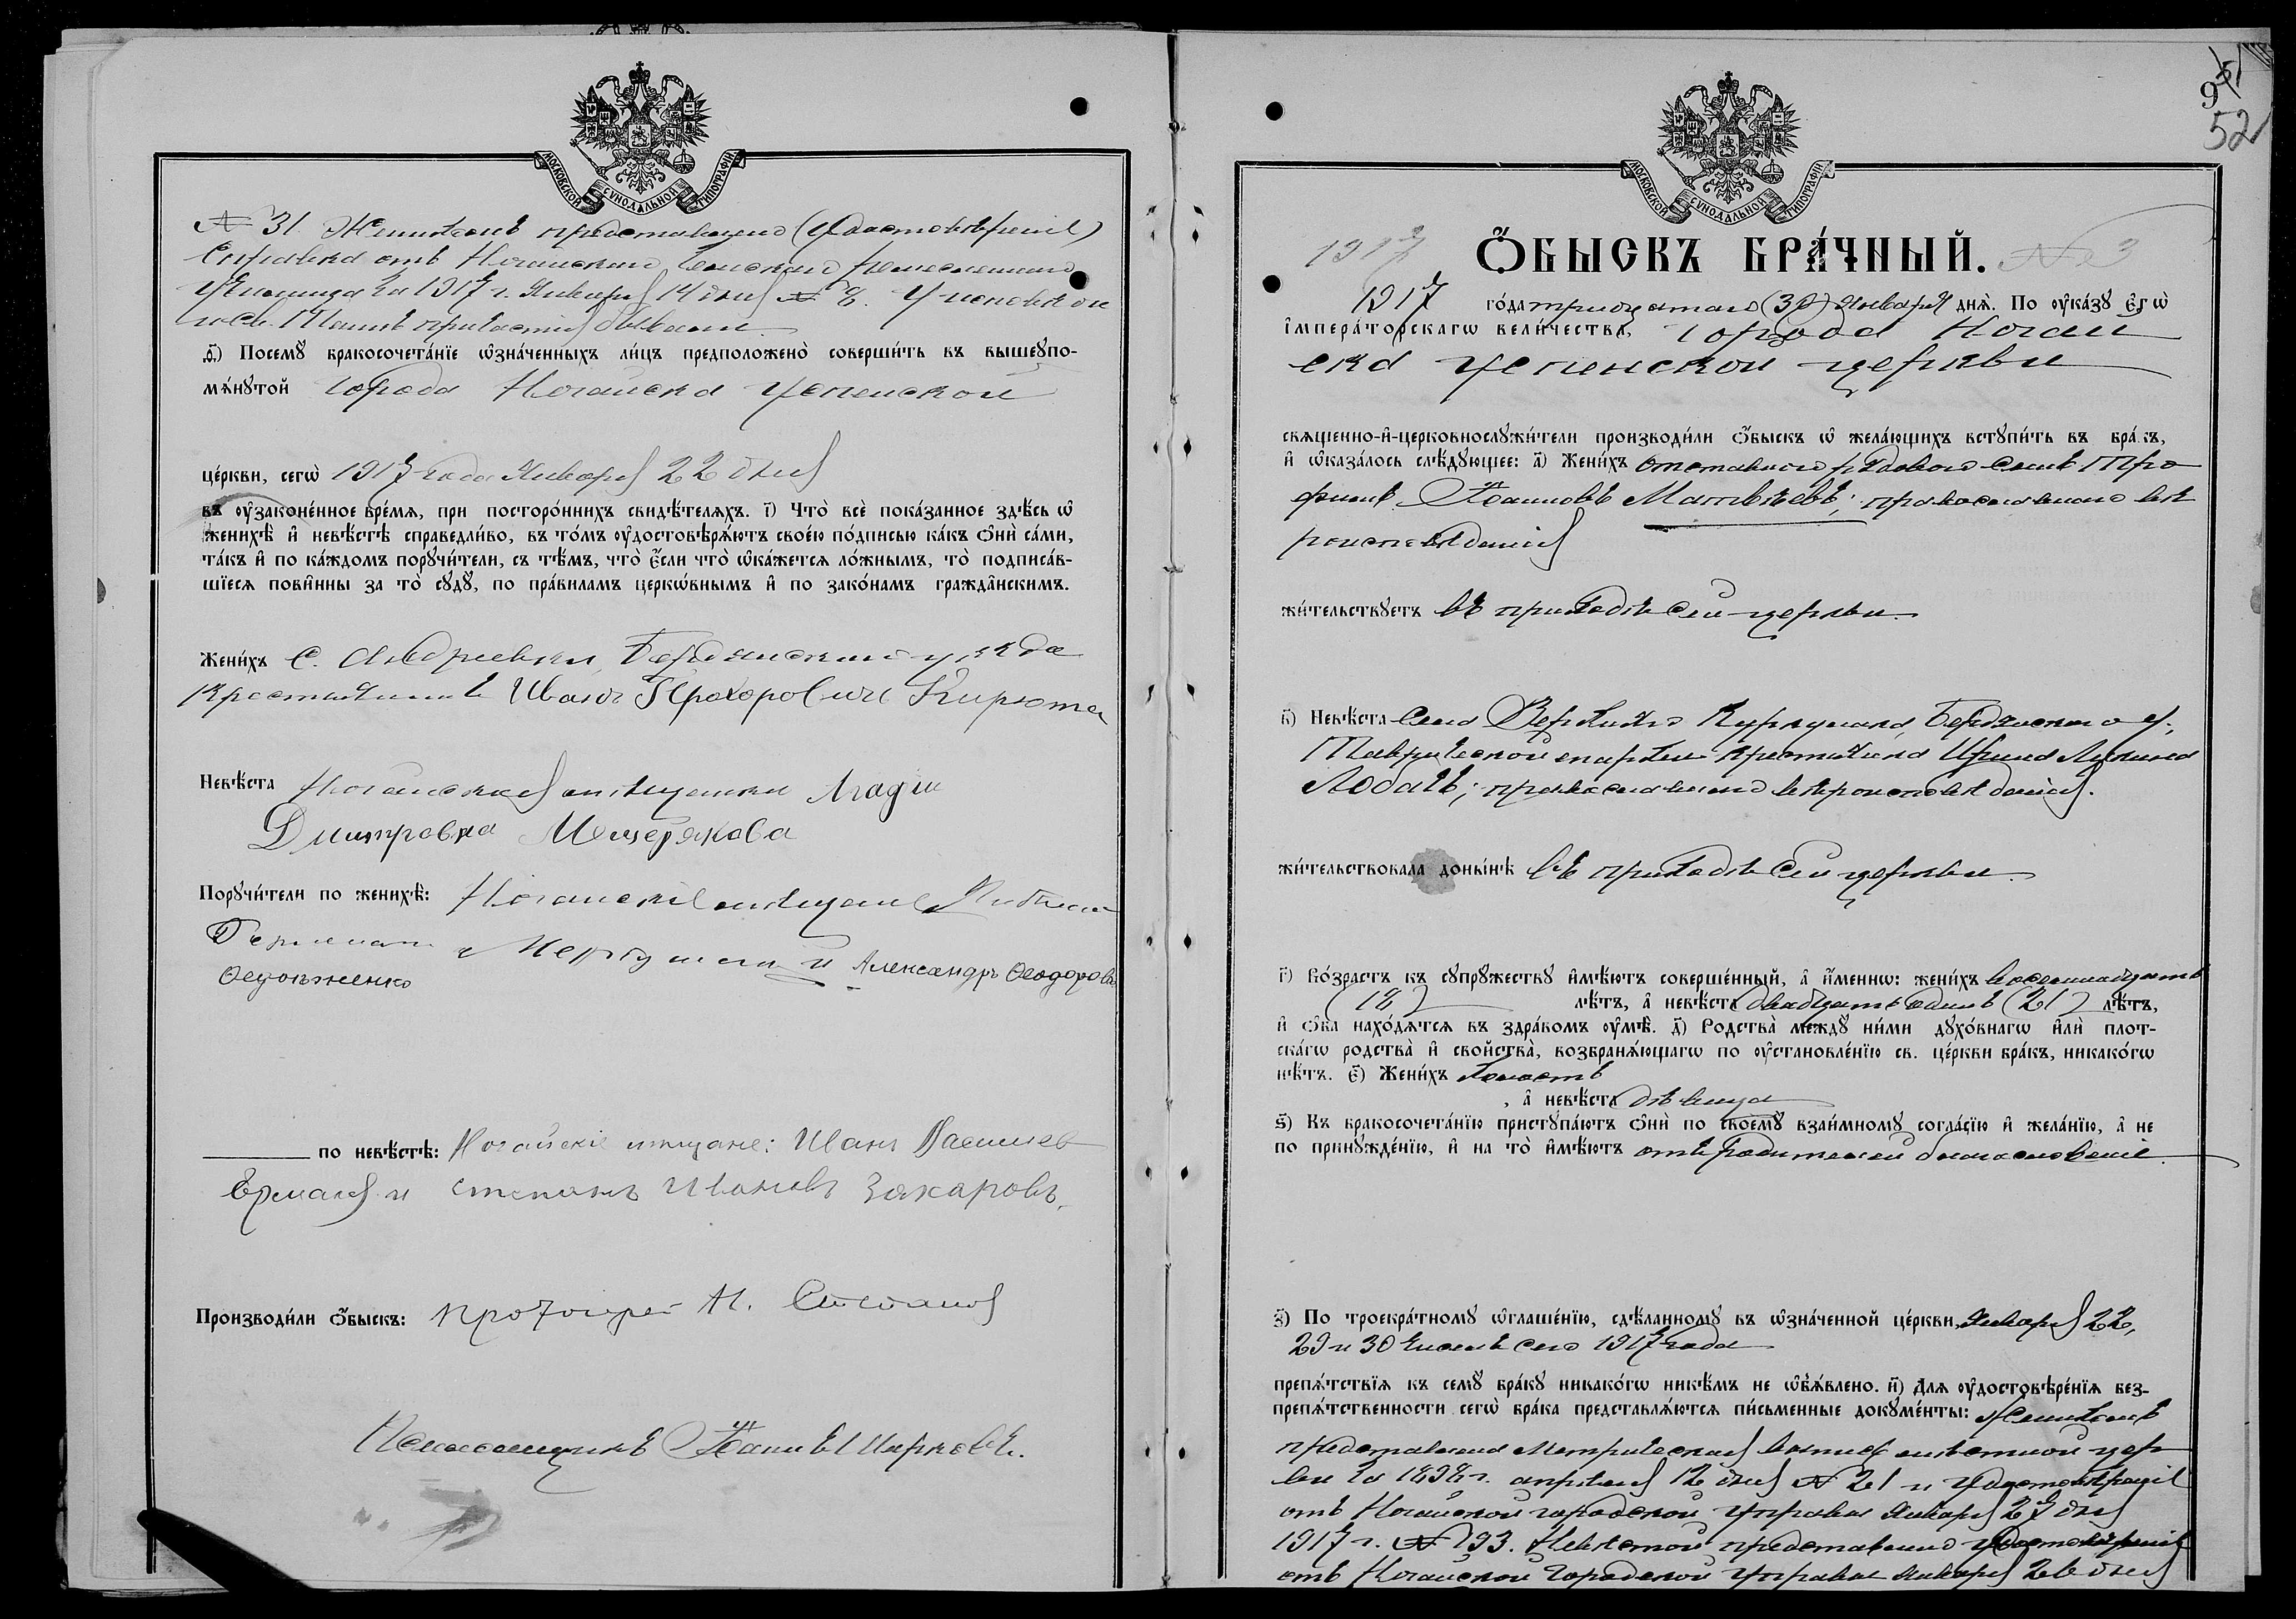 МОСКОВСКОЙ СѴНОДАЛЬНОЙ ТИПОГРАФІИ
№ 31. Женихомъ представлено (удостовѣреніе)
Справка отъ Ногайскаго ремесленнаго
училища за 1917 г. Января 14 дня № 8.
и Св. Таинъ причастія бывали.
ѳ҃) Посемꙋ̀ бракосочета́нїе ѡ҆зна́ченныхъ ли́цъ предположено̀ соверши́ть въ вышеꙋпо-
мѧ́нꙋтой города Ногайска Успенской
це́ркви, сегѡ̀ 1917 года Января 22 дня
въ ᲂу҆законе́нное вре́мѧ, при посторо́ннихъ свидѣ́телѧхъ. і҃) Что̀ всѐ пока́занное здѣ́сь ѡ҆
женихѣ̀ и҆ невѣ́стѣ справедли́во, въ то́мъ ᲂу҆достовѣрѧ́ютъ свое́ю по́дписью ка́къ ѻ҆нѝ са́ми,
та́къ и҆ по ка́ждомъ порꙋчи́тели, съ тѣ́мъ, что̀ є҆́сли что̀ ѡ҆ка́жетсѧ ло́жнымъ, то̀ подписа́в-
шїесѧ пови́нны за то̀ сꙋдꙋ̀, по пра́виламъ церкѡ́внымъ и҆ по зако́намъ гражда̂нскимъ.
Жени́хъ С. Андреевки, Бердянскаго уѣзда
крестьянинъ Иванъ Прохоровичъ Кирюта
Невѣ́ста Ногайская мѣщанка
Дмитровна Мещерякова
Порꙋчи́тели по женихѣ̀: Ногайскіе мѣщане
и Александръ Ѳеодоровъ
Ѳедоьженко
по невѣ́стѣ: Ногайскіе мѣщане: Иванъ Васильев
Ермалъ и Степанъ Ивановъ Захаровъ.
Производи́ли ѻ҆́быскъ: Протоіерей
Псаломщикъ
95
52
МОСКОВСКОЙ СѴНОДАЛЬНОЙ ТИПОГРАФІИ
1917 Ѻ҆́БЫСКЪ БРА́ЧНЫЙ. № 3
1917 го́да тридцатаго (30) Января днѧ̀. По ᲂу҆ка́зꙋ Є҆гѡ̀
і҆мпера́торскагѡ вели́чества, города Ногай
ска Успенской церкви
свѧще́нно-и҆-церковнослꙋжи́тели производи́ли ѻ҆́быскъ ѡ҆ жела́ющихъ встꙋпи́ть въ бра́къ,
и҆ ѡ҆каза́лось слѣ́дꙋющее: а҃) Жени́хъ отставного рядового сынъ Тро
фимъ Іоанновъ Матвѣевъ; православнаго вѣ
роисповѣданія
жи́тельствꙋетъ въ приходѣ сей церкви.
в҃) Невѣ́ста Села Верхняго Куркулака, Бердянскаго у.,
Таврической епархіи крестьянка Ирина Лукина
Лобачъ; православнаго вѣроисповѣданія.
жи́тельствовала доны́нѣ въ приходѣ сей церкви.
г҃) Во́зрастъ къ сꙋпрꙋ́жествꙋ и҆мѣ́ютъ соверше́нный, а҆ и҆́меннѡ: жени́хъ восемнадцать
(18) лѣ́тъ, а҆ невѣ́ста двадцать одинъ (21) лѣ́тъ,
и҆ ѻ҆́ба нахо́дѧтсѧ въ здра́вомъ ᲂу҆мѣ̀. д҃) Родства̀ междꙋ̀ ни́ми дꙋхо́внагѡ и҆лѝ плот-
ска́гѡ родства̀ и҆ свойства̀, возбранѧ́ющагѡ по ᲂу҆становле́нїю св. це́ркви бра́къ, никако́гѡ
нѣ́тъ. є҃) Жени́хъ холостъ
, а҆ невѣ́ста дѣвица
ѕ҃) Къ бракосочета́нїю пристꙋпа́ютъ ѻ҆нѝ по своемꙋ̀ взаи́мномꙋ согла́сїю и҆ жела́нїю, а҆ не
по принꙋжде́нїю, и҆ на то̀ и҆мѣ́ютъ отъ родителей благословеніе.
з҃) По троекра́тномꙋ ѡ҆глаше́нїю, сдѣ́ланномꙋ въ ѡ҆зна́ченной це́ркви, Января 22,
29 и 30 чиселъ сего 1917 года
препѧ́тствїѧ къ семꙋ̀ бра́кꙋ никако́гѡ никѣ́мъ не ѡ҆б̾ѧ́влено. и҃) Для ᲂу҆достовѣре́нїѧ без-
препѧ́тственности сегѡ̀ бра́ка представлѧ́ютсѧ пи́сьменные докꙋме́нты: Женихомъ
представлена Метрическая выпись мѣстной цер
кви за 1898 г. апрѣля 12 дня № 21 и удостовѣреніе
отъ Ногайской городской управы Января 27 дня
1917 г. № 193. Невѣстой представлено удостовѣреніе
отъ Ногайской Городской управы Января 26 дня